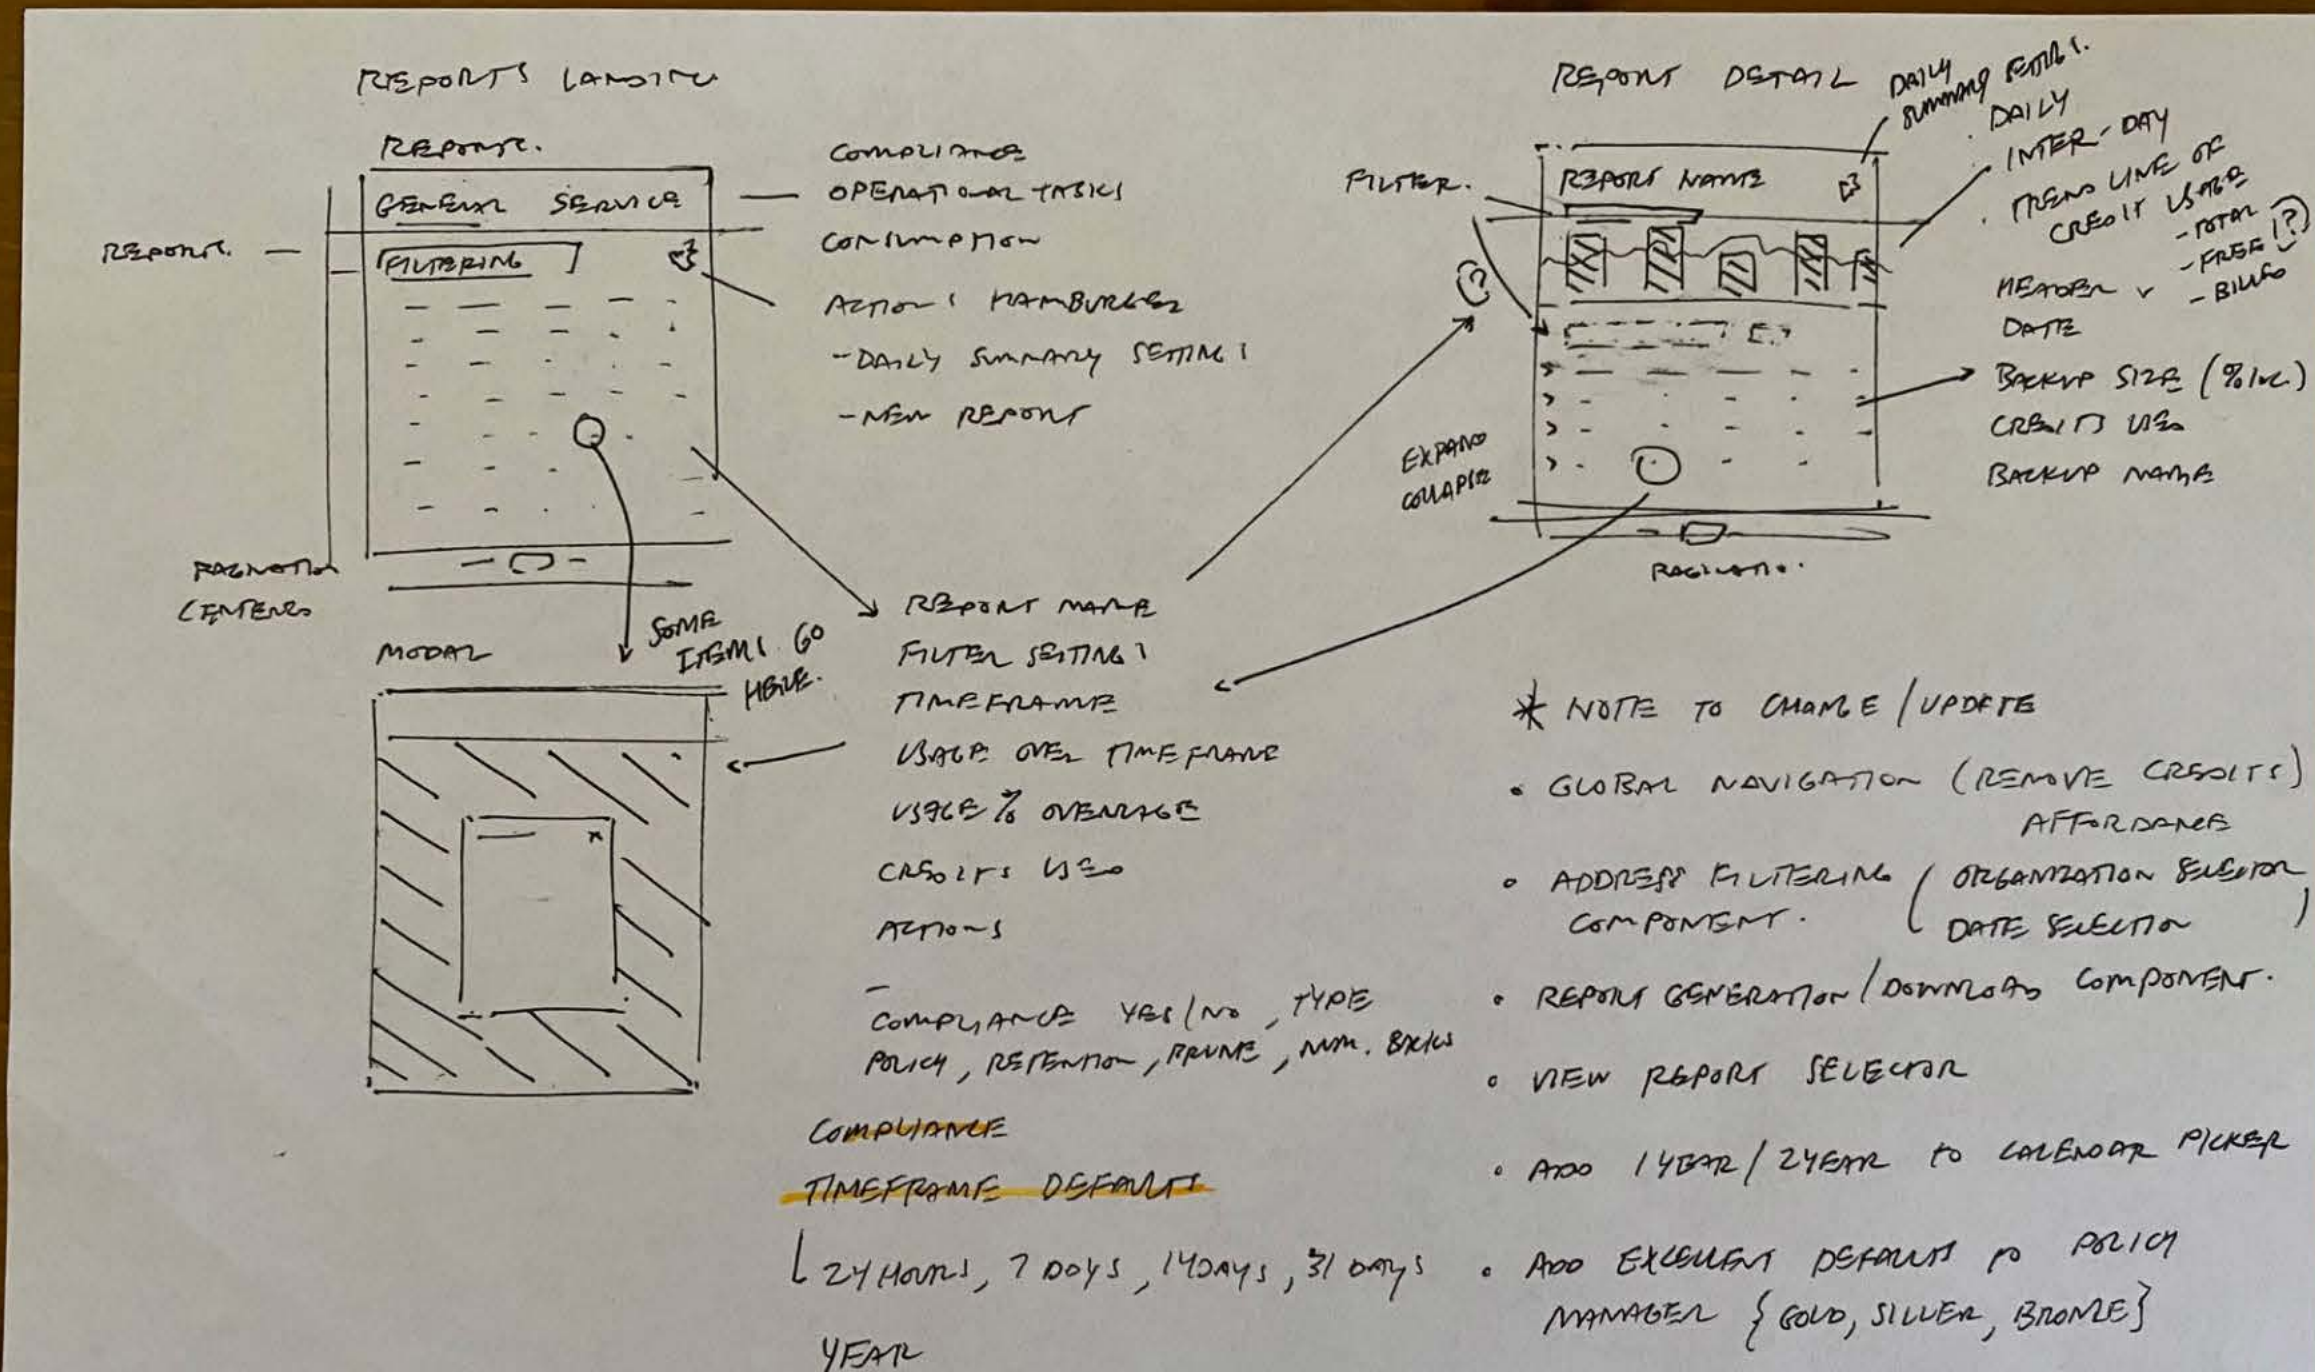 REPORTS LANDING
REPORTS.
GENERAL SERVICE
REPORTS. —
FILTERING
PAGINATION
CENTERED
COMPLIANCE
OPERATIONAL TASKS
CONSUMPTION
ACTIONS HAMBURGER
- DAILY SUMMARY SETTINGS
- NEW REPORT
MODAL
SOME
ITEMS GO
HERE.
REPORT NAME
FILTER SETTINGS
TIMEFRAME
USAGE OVER TIMEFRAME
USAGE % OVERAGE
CREDITS USED
ACTIONS
–
COMPLIANCE YES/NO, TYPE
POLICY, RETENTION, PRUNE, NUM. BACKUPS
COMPLIANCE
TIMEFRAME DEFAULTS
24 HOURS, 7 DAYS, 14 DAYS, 31 DAYS
YEAR
REPORT DETAIL
DAILY
SUMMARY SETTINGS.
FILTER.
REPORT NAME
(?)
EXPAND
COLLAPSE
PAGINATION.
· DAILY
INTER-DAY
· TREND LINE OF
CREDIT USAGE
- TOTAL
- FREE (?)
- BILLED
HEADER
DATE
BACKUP SIZE (% INC.)
CREDITS USED
BACKUP NAME
* NOTE TO CHANGE / UPDATE
• GLOBAL NAVIGATION (REMOVE CREDITS)
AFFORDANCE
• ADDRESS FILTERING ( ORGANIZATION SELECTOR
COMPONENT. DATE SELECTION )
• REPORT GENERATION / DOWNLOAD COMPONENT.
• VIEW REPORT SELECTOR
• ADD 1 YEAR / 2 YEAR TO CALENDAR PICKER
• ADD EXCELLENT DEFAULTS TO POLICY
MANAGER {GOLD, SILVER, BRONZE}